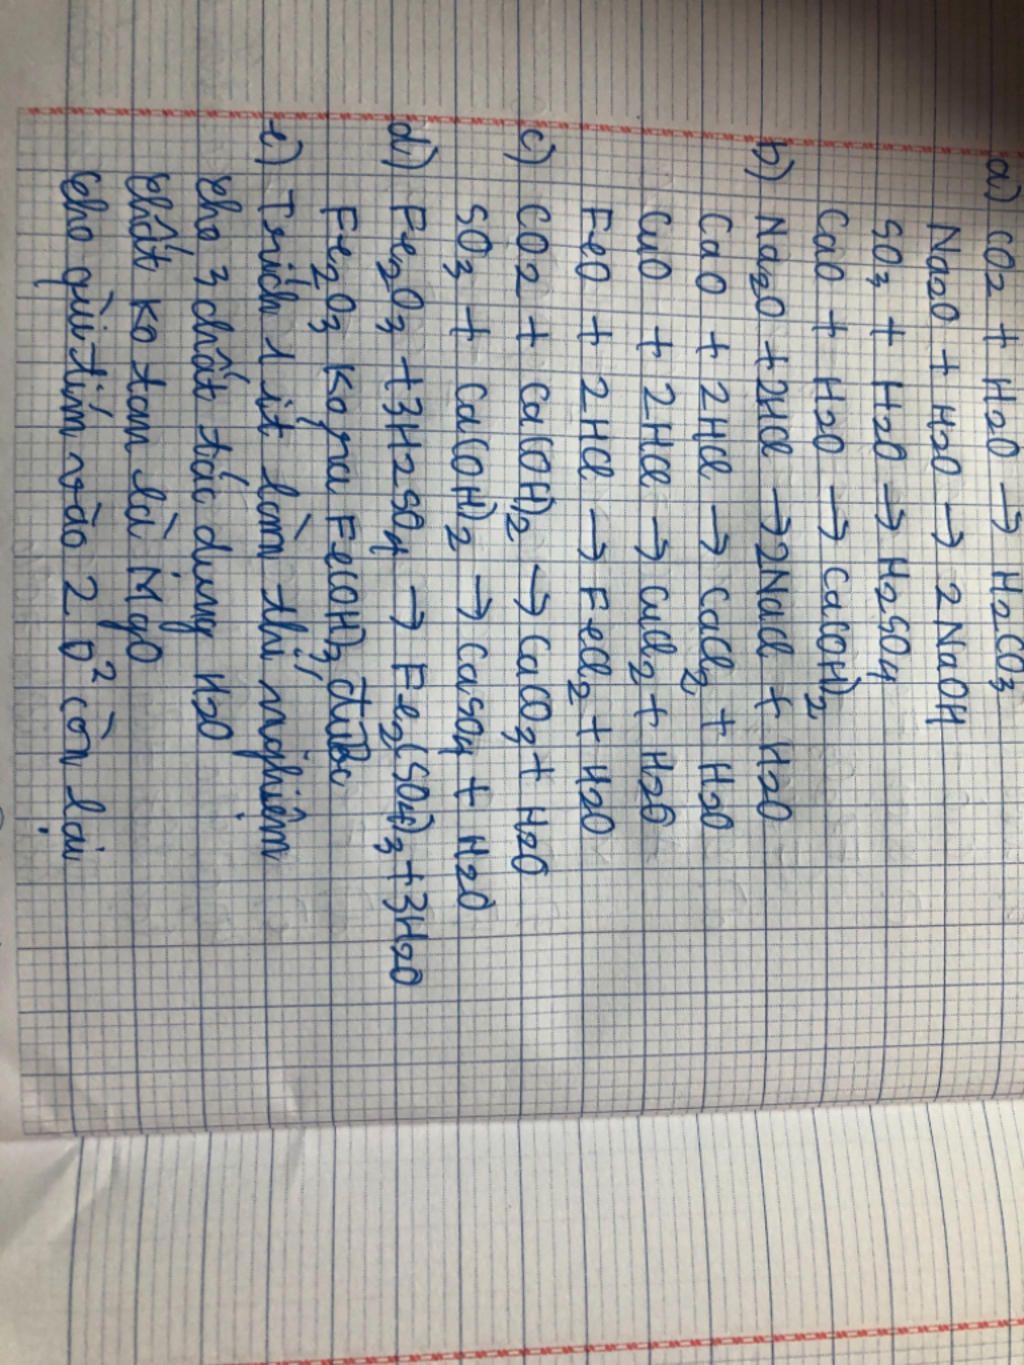 a) CO2 + H2O → H2CO3
Na2O + H2O → 2NaOH
SO3 + H2O → H2SO4
CaO + H2O → Ca(OH)2
b) Na2O + 2HCl → 2NaCl + H2O
CaO + 2HCl → CaCl2 + H2O
CuO + 2HCl → CuCl2 + H2O
FeO + 2HCl → FeCl2 + H2O
c) CO2 + Ca(OH)2 → CaCO3 + H2O
SO3 + Ca(OH)2 → CaSO4 + H2O
d) Fe2O3 + 3H2SO4 → Fe2(SO4)3 + 3H2O
Fe2O3 ko ra Fe(OH)3 được
e) Trích 1 ít làm thí nghiệm
cho 3 chất tác dụng H2O
chất ko tan là MgO
cho quì tím vào 2 D² còn lại